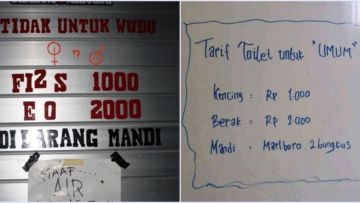 TIDAK UNTUK WUDU
♀ n ♂
FIZ S 1000
E O 2000
DI LARANG MANDI
MAAF
AIR
Tarif Toilet untuk "UMUM"
Kencing = Rp 1.000
Berak = Rp 2.000
Mandi = Marlboro 2 bungkus